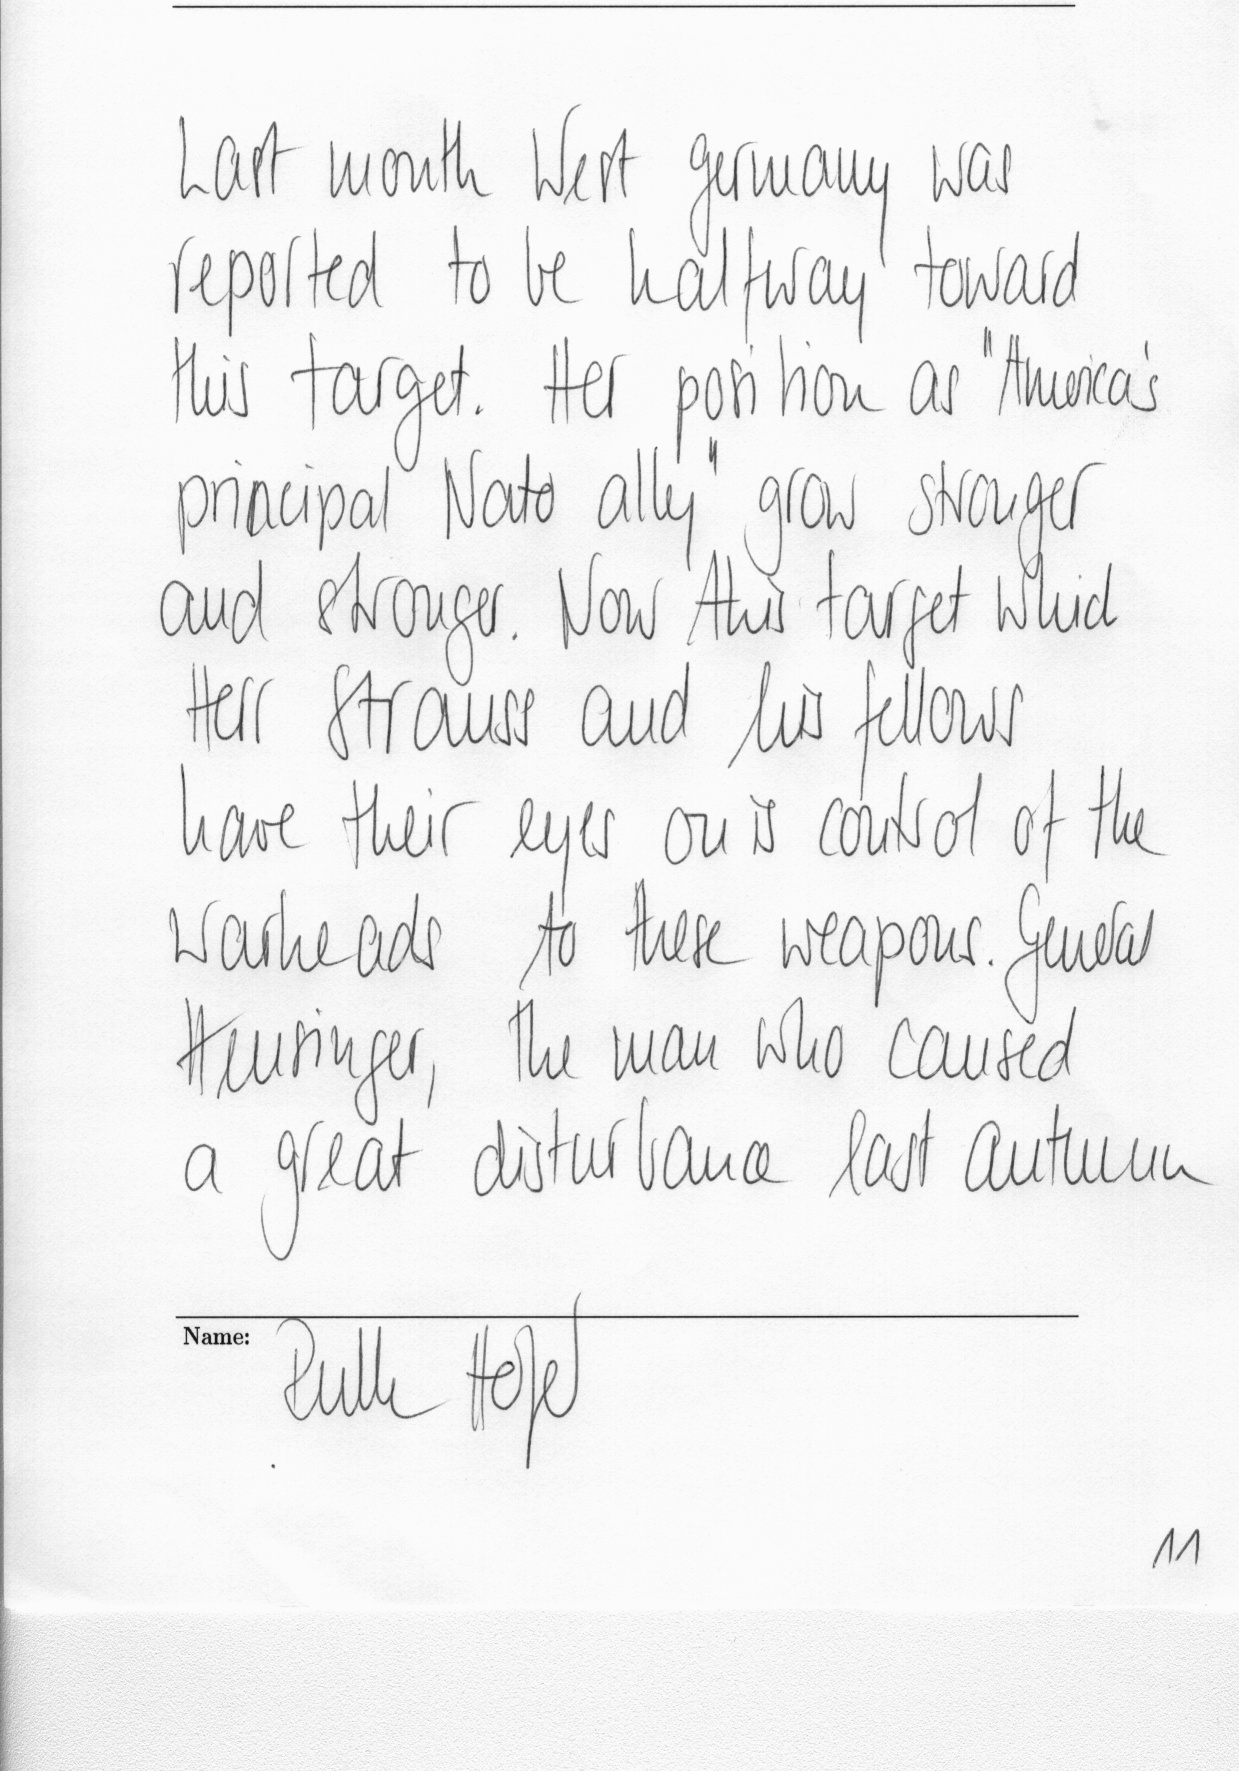 Last month West Germany was
reported to be halfway toward
this target. Her position as "America's
principal Nato ally" grow stronger
and stronger. Now this target which
Herr Strauss and his fellows
have their eyes on is control of the
warheads to these weapons. General
Heusinger, the man who caused
a great disturbance last autumn
Name:
11